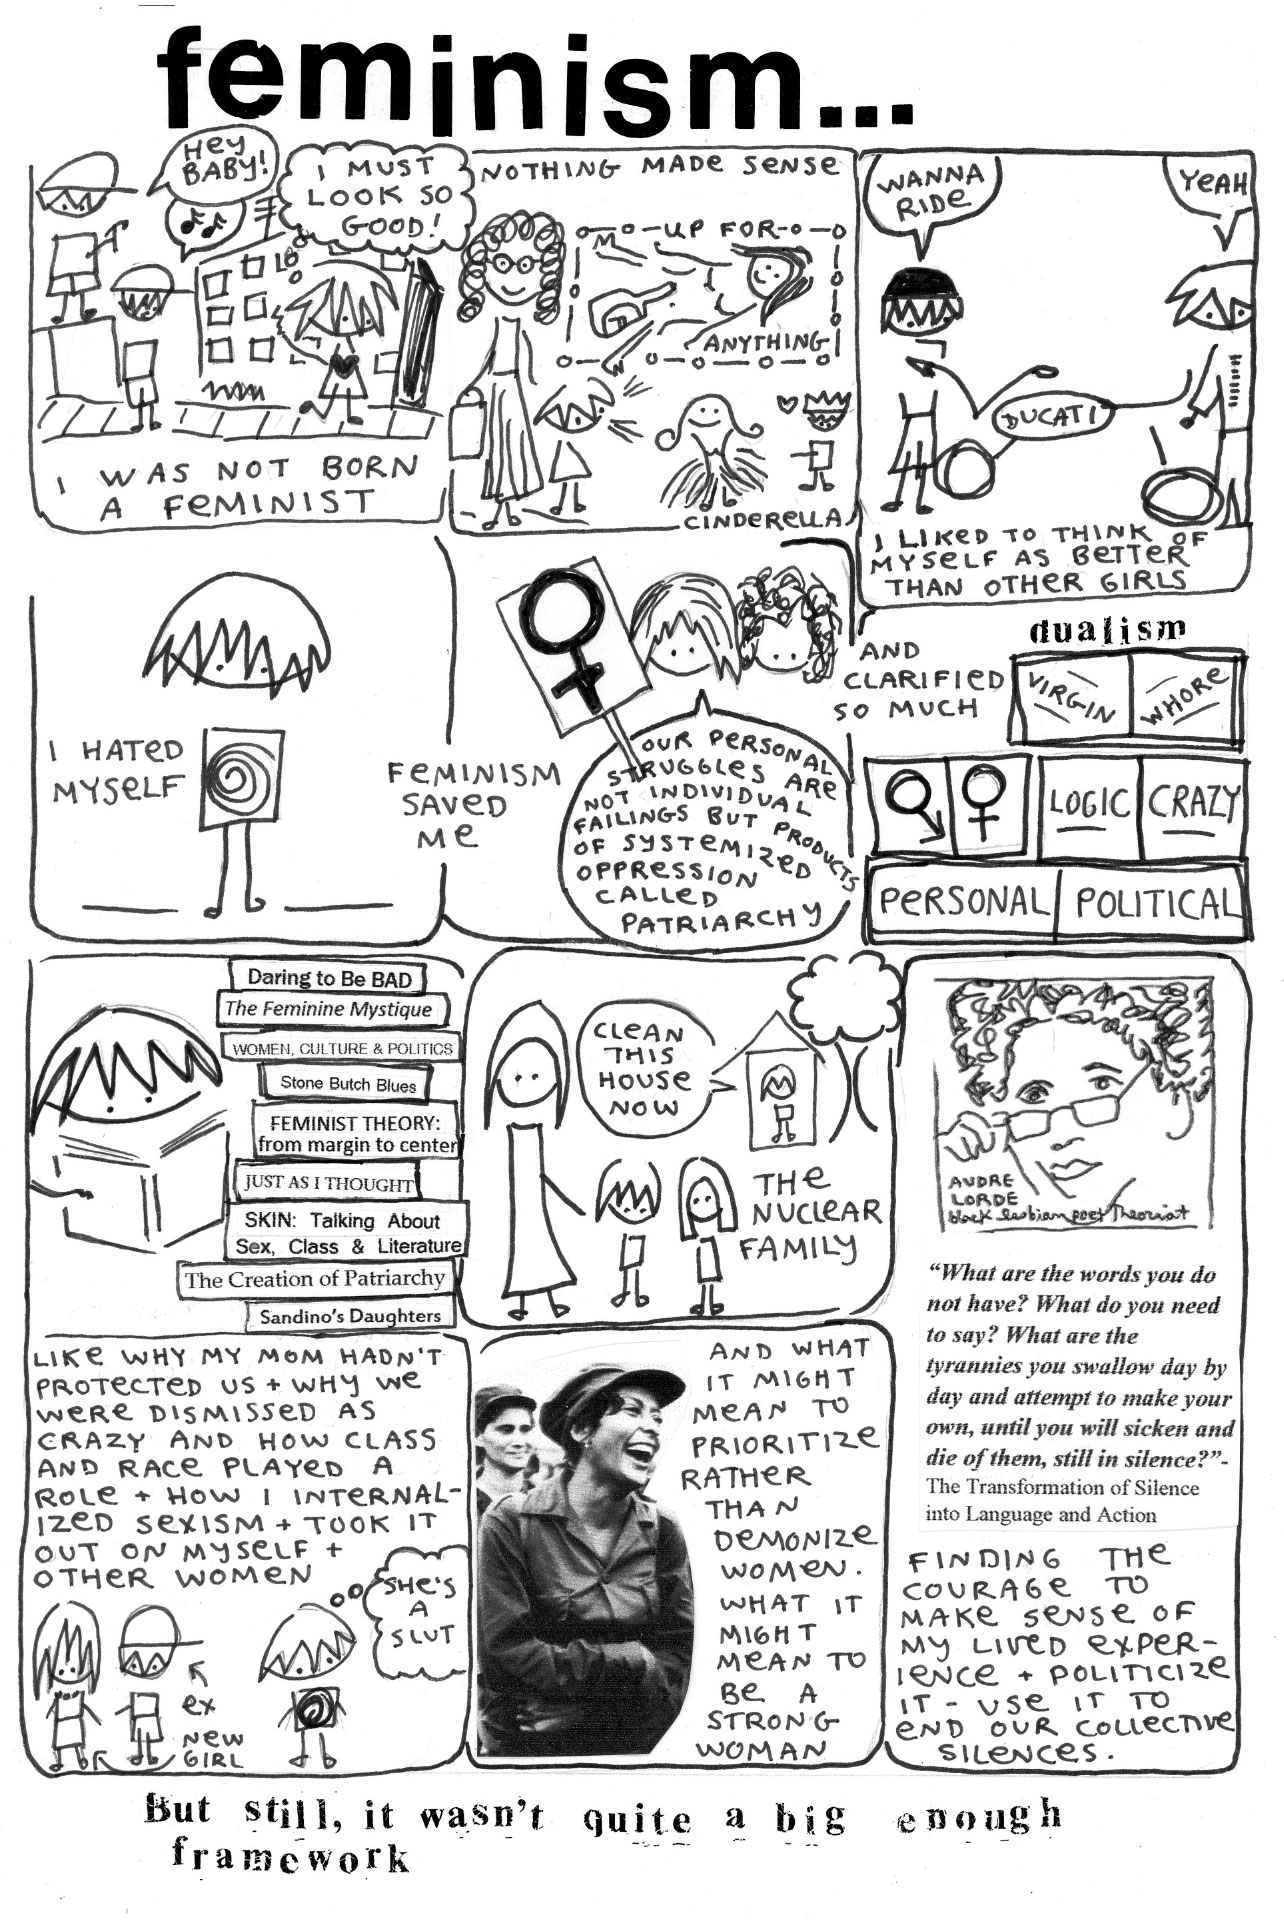 feminism...
HEY
BABY!
I MUST
LOOK SO
GOOD!
I WAS NOT BORN
A FEMINIST
NOTHING MADE SENSE
UP FOR
ANYTHING
CINDERELLA
WANNA
RIDE
YEAH
DUCATI
I LIKED TO THINK OF
MYSELF AS BETTER
THAN OTHER GIRLS
I HATED
MYSELF
FEMINISM
SAVED
ME
OUR PERSONAL
STRUGGLES ARE
NOT INDIVIDUAL
FAILINGS BUT PRODUCTS
OF SYSTEMIZED
OPPRESSION
CALLED
PATRIARCHY
AND
CLARIFIED
SO MUCH
dualism
VIRGIN WHORE
LOGIC CRAZY
PERSONAL POLITICAL
Daring to Be BAD
The Feminine Mystique
WOMEN, CULTURE & POLITICS
Stone Butch Blues
FEMINIST THEORY:
from margin to center
JUST AS I THOUGHT
SKIN: Talking About
Sex, Class & Literature
The Creation of Patriarchy
Sandino's Daughters
CLEAN
THIS
HOUSE
NOW
THE
NUCLEAR
FAMILY
AUDRE
LORDE
black lesbian poet Theorist
"What are the words you do
not have? What do you need
to say? What are the
tyrannies you swallow day by
day and attempt to make your
own, until you will sicken and
die of them, still in silence?"-
The Transformation of Silence
into Language and Action
LIKE WHY MY MOM HADN'T
PROTECTED US + WHY WE
WERE DISMISSED AS
CRAZY AND HOW CLASS
AND RACE PLAYED A
ROLE + HOW I INTERNAL-
IZED SEXISM + TOOK IT
OUT ON MYSELF +
OTHER WOMEN
SHE'S
A
SLUT
EX
NEW
GIRL
AND WHAT
IT MIGHT
MEAN TO
PRIORITIZE
RATHER
THAN
DEMONIZE
WOMEN.
WHAT IT
MIGHT
MEAN TO
BE A
STRONG
WOMAN
FINDING THE
COURAGE TO
MAKE SENSE OF
MY LIVED EXPER-
IENCE + POLITICIZE
IT - USE IT TO
END OUR COLLECTIVE
SILENCES.
But still, it wasn't quite a big enough
framework